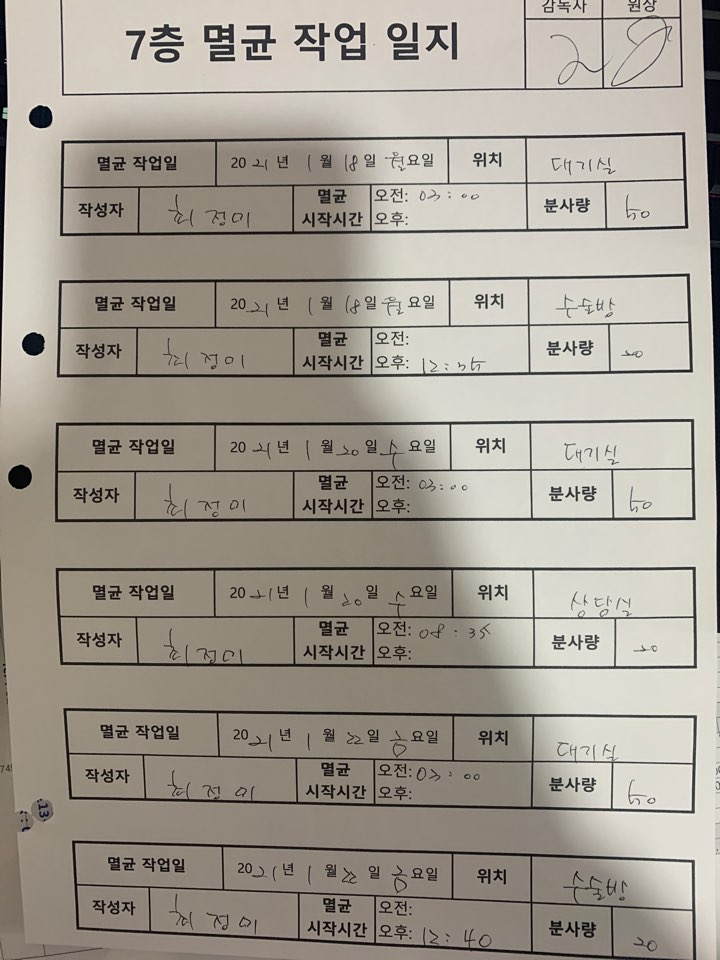 감독사 원장
7층 멸균 작업 일지
멸균 작업일 2021년 1월 18일 월요일 위치 대기실
작성자 최정미 멸균 시작시간 오전: 03:00 오후: 분사량
멸균 작업일 2021년 1월 18일 월요일 위치 수술방
작성자 최정미 멸균 시작시간 오전: 오후: 12:45 분사량 20
멸균 작업일 2021년 1월 20일 수요일 위치 대기실
작성자 최정미 멸균 시작시간 오전: 03:00 오후: 분사량
멸균 작업일 2021년 1월 20일 수요일 위치 상담실
작성자 최정미 멸균 시작시간 오전: 08:35 오후: 분사량 20
멸균 작업일 2021년 1월 22일 금요일 위치 대기실
작성자 최정미 멸균 시작시간 오전: 03:00 오후: 분사량
멸균 작업일 2021년 1월 22일 금요일 위치 수술방
작성자 최정미 멸균 시작시간 오전: 오후: 12:40 분사량 20
13